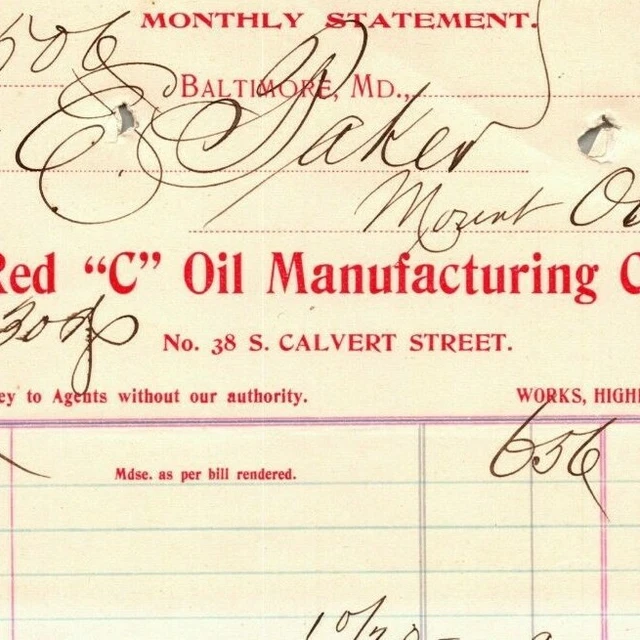 MONTHLY STATEMENT.
BALTIMORE, MD.,
E Baker
Mount
Red “C” Oil Manufacturing C
No. 38 S. CALVERT STREET.
ey to Agents without our authority.
WORKS, HIGHL
656
Mdse. as per bill rendered.